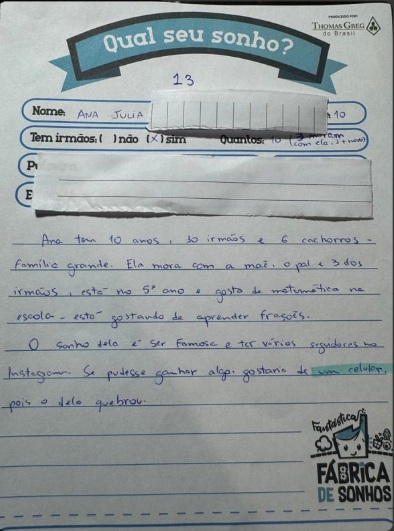 PRODUZIDO POR:
THOMAS GREG
do Brasil
Qual seu sonho?
13
Nome: ANA JULIA 10
Tem irmãos: ( ) não (X) sim Quantos: 10 (3 moram
com ela, )
P
E
Ana tem 10 anos, 10 irmãos e 6 cachorros -
família grande. Ela mora com a mãe, o pai e 3 dos
irmãos, está no 5º ano e gosta de matemática na
escola - está gostando de aprender frações.
O sonho dela é ser famosa e ter vários seguidores no
Instagram. Se pudesse ganhar algo, gostaria de um celular,
pois o dela quebrou.
Fantástica
FÁBRICA
DE SONHOS